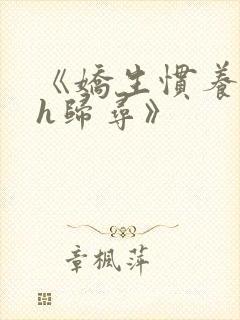 《嬌生慣養
h歸尋》
章楓萍